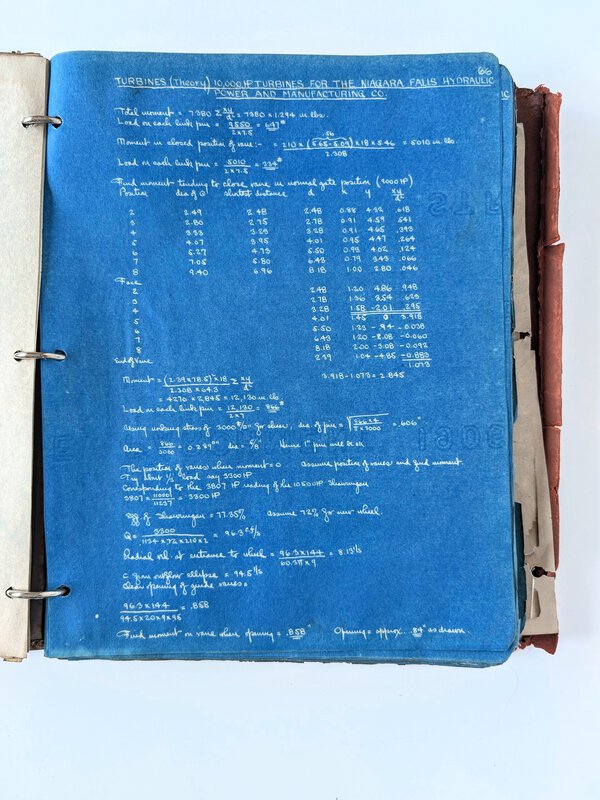 66
TURBINES (Theory) 10,000 HP TURBINES FOR THE NIAGARA FALLS HYDRAULIC
POWER AND MANUFACTURING CO.
Total moment = 7380 Σ xy/d² = 7380 × 1.294 in lbs.
Load on each link pin = 9550 / 2×7.5 = 637#
Moment in closed position of vane :- = 210 × (5.65-5.09) .56 / 2.308 × 18 × 5.46 = 5010 in lbs.
Load on each link pin = 5010 / 2×7.5 = 334#
Find moment tending to close vane in normal gate position (9000 HP)
Position dia of O shortest distance d x y xy/d²
2 2.49 2.48 2.48 0.88 4.32 .618
3 2.80 2.75 2.78 0.91 4.59 .541
4 3.33 3.23 3.28 0.91 4.65 .393
5 4.07 3.95 4.01 0.95 4.47 .264
6 5.27 4.73 5.50 0.93 4.02 .124
7 7.05 5.80 6.43 0.79 3.43 .066
8 9.40 6.96 8.18 1.00 2.80 .046
Face
2 2.48 1.20 4.86 .948
3 2.78 1.36 3.54 .623
4 3.28 1.58 -2.01 .295
5 4.01 1.45 0 3.918
6 5.50 1.23 -.94 -0.038
7 6.43 1.20 -2.08 -0.060
8 8.18 2.00 -3.08 -0.092
End of Vane 2.39 1.04 -4.85 -0.883
1.073
3.918-1.073 = 2.845
Moment = (2.39×78.5)² × 18 / 2.308 × 64.3 Σ xy/d²
= 4270 × 2.845 = 12,130 in lbs
Load on each link pin = 12,130 / 2×7 = 866#
Using working stress of 3000 #/□" for shear, dia of pin = √ 866×4 / π×3000 = .606"
Area = 866 / 3000 = 0.289□" dia = 5/8" Hence 1" pin will be ok
The position of vanes where moment = 0 Assume position of vanes and find moment.
Try about 1/3 load say 3300 HP
Corresponding to the 3807 HP reading of the 10500 HP Shawinigan
3807 × 11000 / 11237 = 3300 HP
Eff. of Shawinigan = 77.35% Assume 72% for new wheel.
Q = 3300 / 1134×.72×210×2 = 96.3 c.f/s
Radial vel. at entrance to wheel = 96.3×144 / 60.3π×9 = 8.13 f/s
C from outflow ellipse = 94.5 f/s
Clear opening of guide vanes =
96.3×144 / 94.5×20×9×.95 = .858
Find moment on vane where opening = .858 Opening = approx. .84" as drawn.